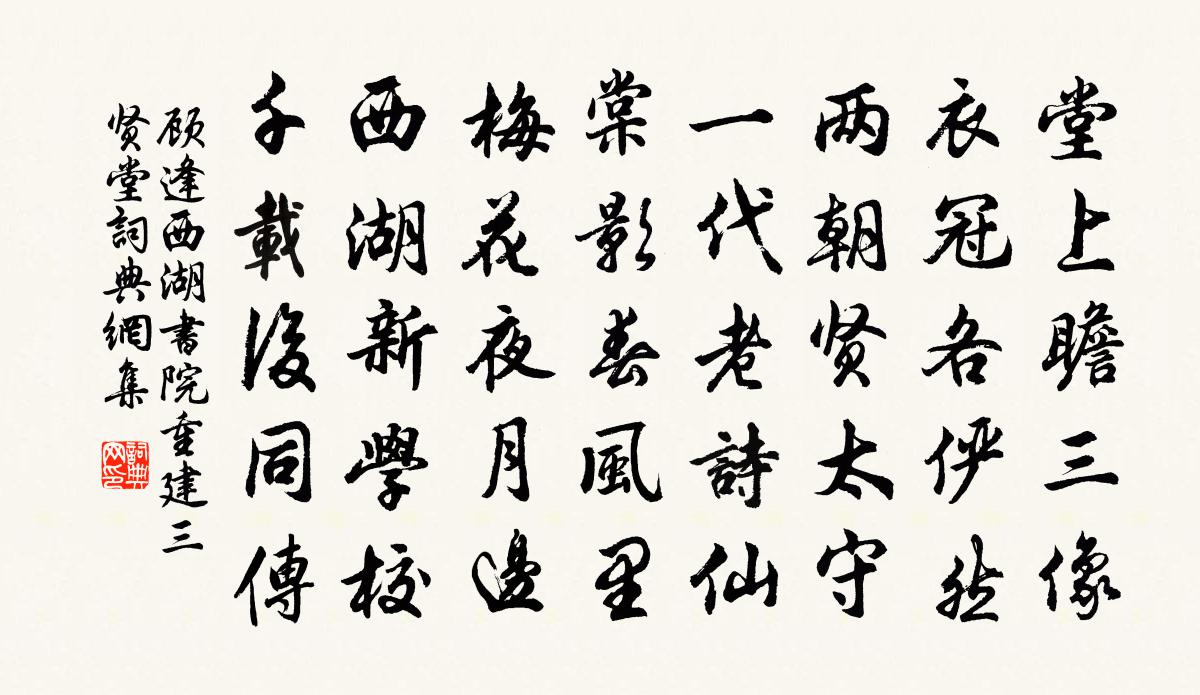 堂上瞻三像
衣冠各俨然
两朝贤太守
一代老詩仙
棠影春風里
梅花夜月邊
西湖新學校
千載後同傳
顾逢西湖書院重建三
贤堂詞典網集
詞典网印